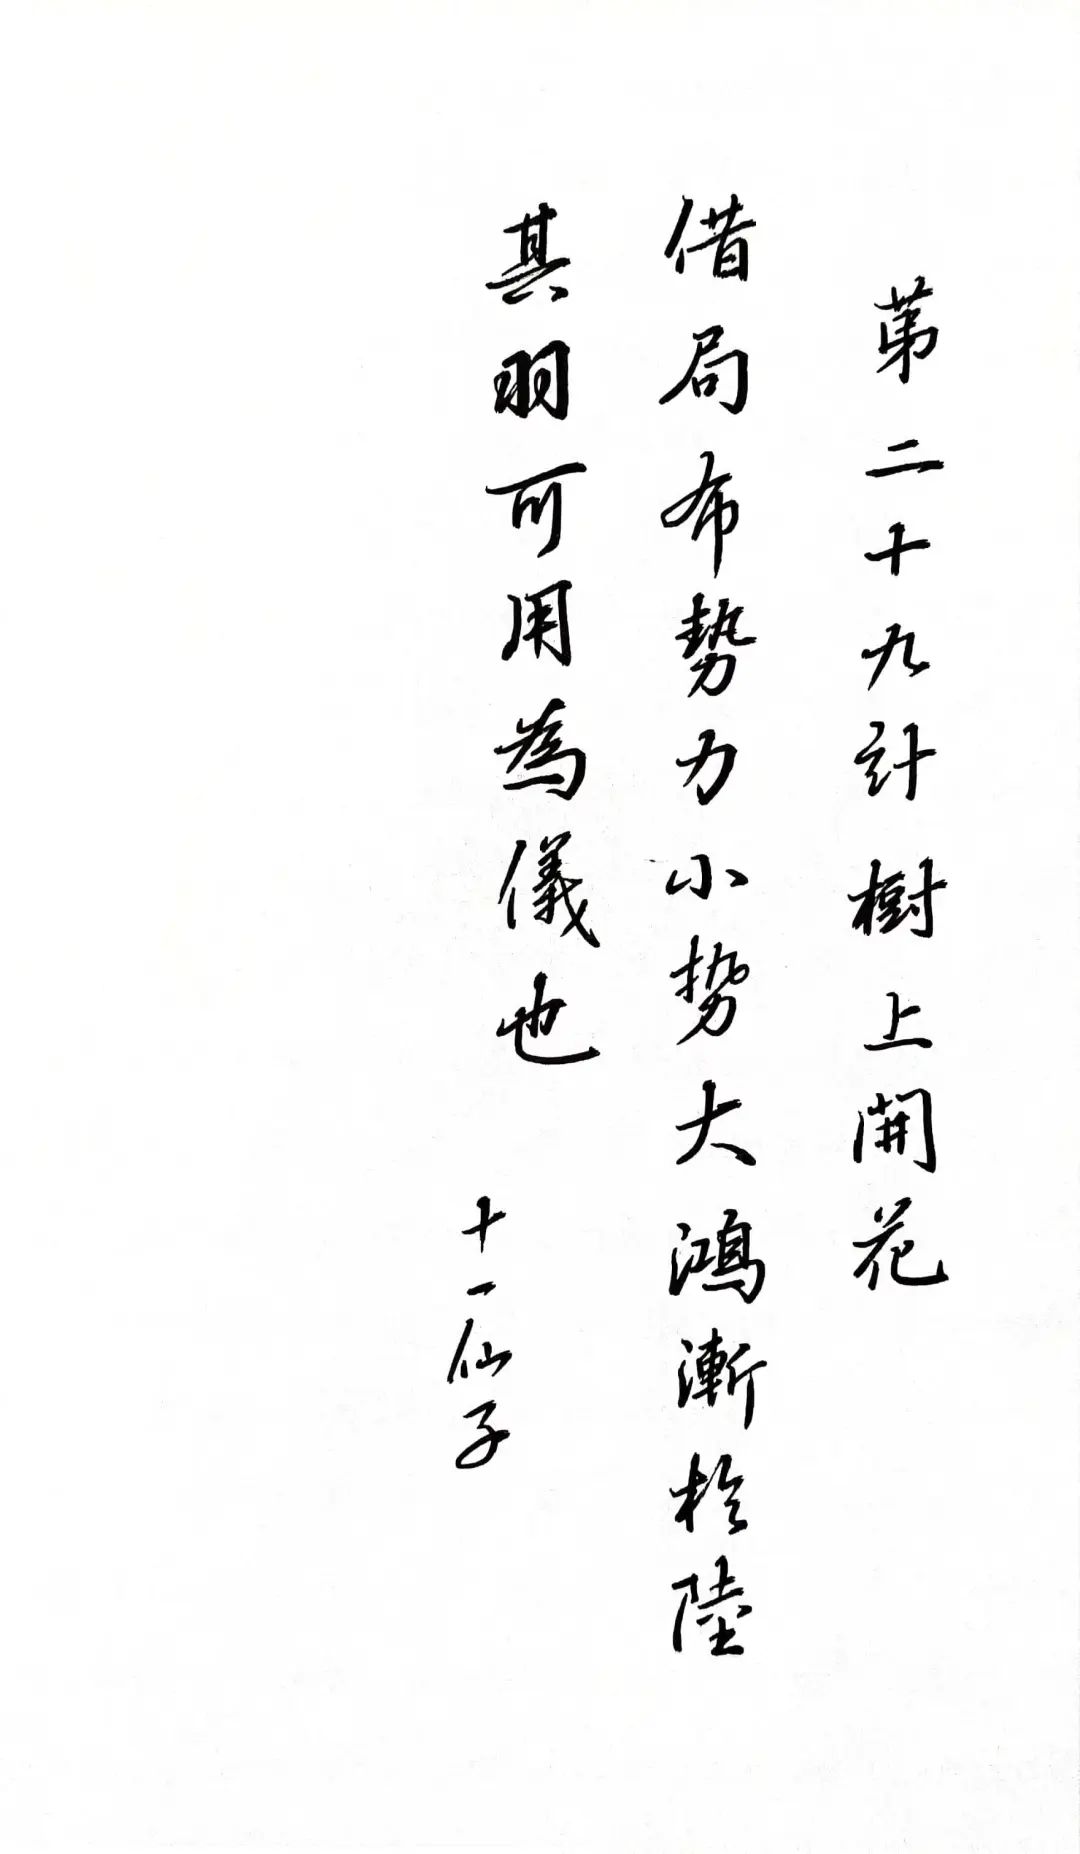 第二十九計樹上開花
借局布勢力小势大鴻漸於陸
其羽可用為儀也
十一仙子